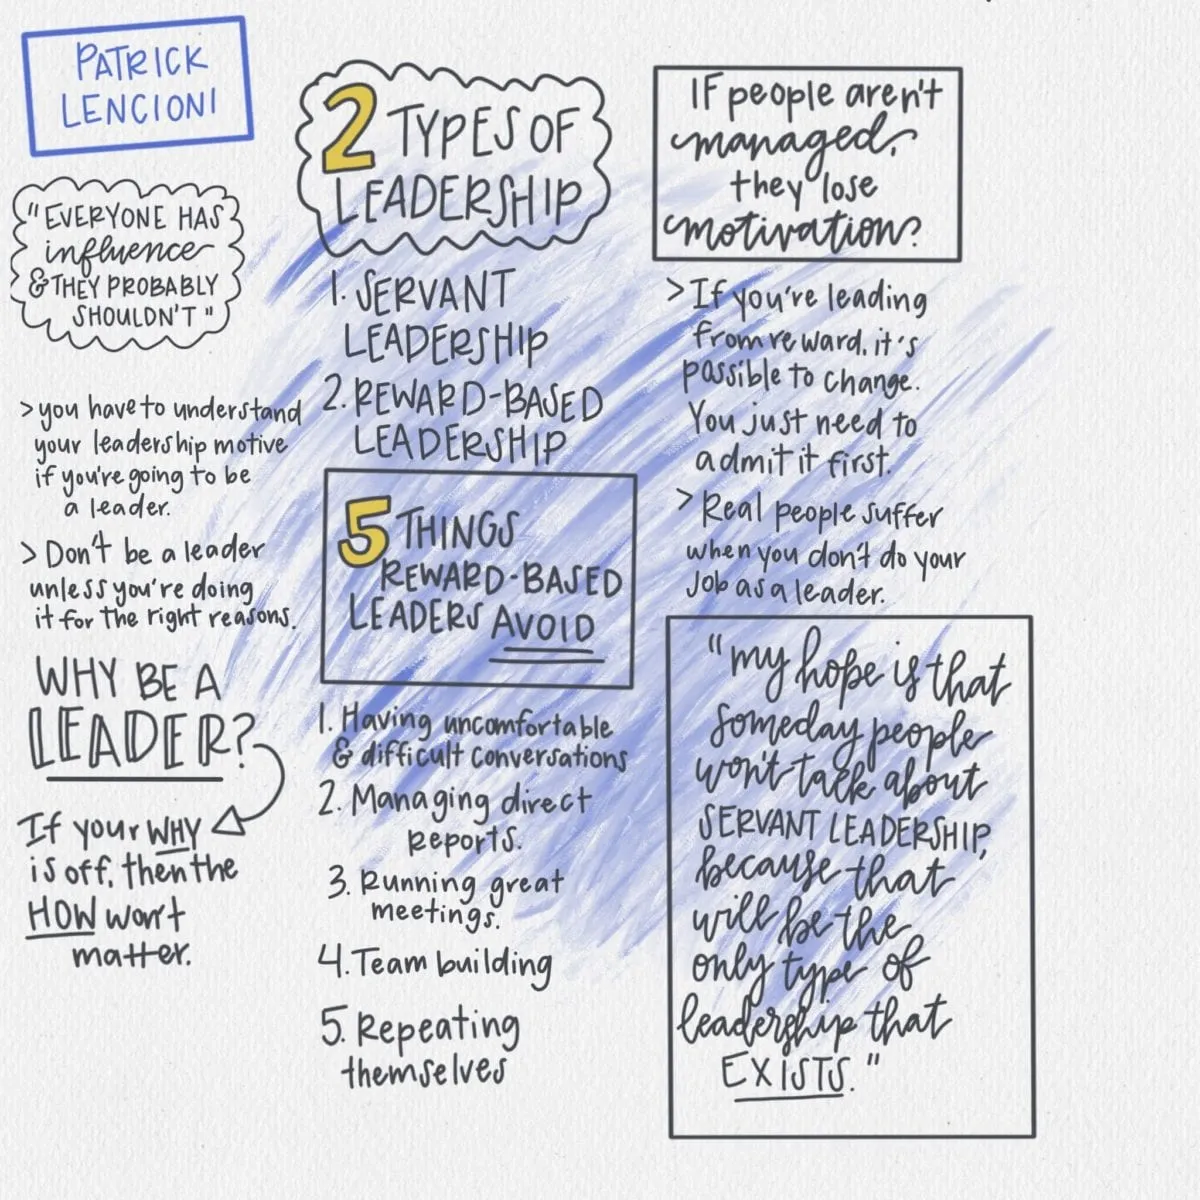 PATRICK
LENCIONI
"EVERYONE HAS
influence
& THEY PROBABLY
SHOULDN'T"
> you have to understand
your leadership motive
if you're going to be
a leader.
> Don't be a leader
unless you're doing
it for the right reasons.
WHY BE A
LEADER?
If your WHY
is off, then the
HOW won't
matter.
2 TYPES OF
LEADERSHIP
1. SERVANT
LEADERSHIP
2. REWARD-BASED
LEADERSHIP
5 THINGS
REWARD-BASED
LEADERS AVOID
1. Having uncomfortable
& difficult conversations
2. Managing direct
reports.
3. Running great
meetings.
4. Team building
5. Repeating
themselves
IF people aren't
managed,
they lose
motivation?
> If you're leading
from reward, it's
possible to change.
You just need to
admit it first.
> Real people suffer
when you don't do your
job as a leader.
"my hope is that
someday people
won't talk about
SERVANT LEADERSHIP,
because that
will be the
only type of
leadership that
EXISTS."